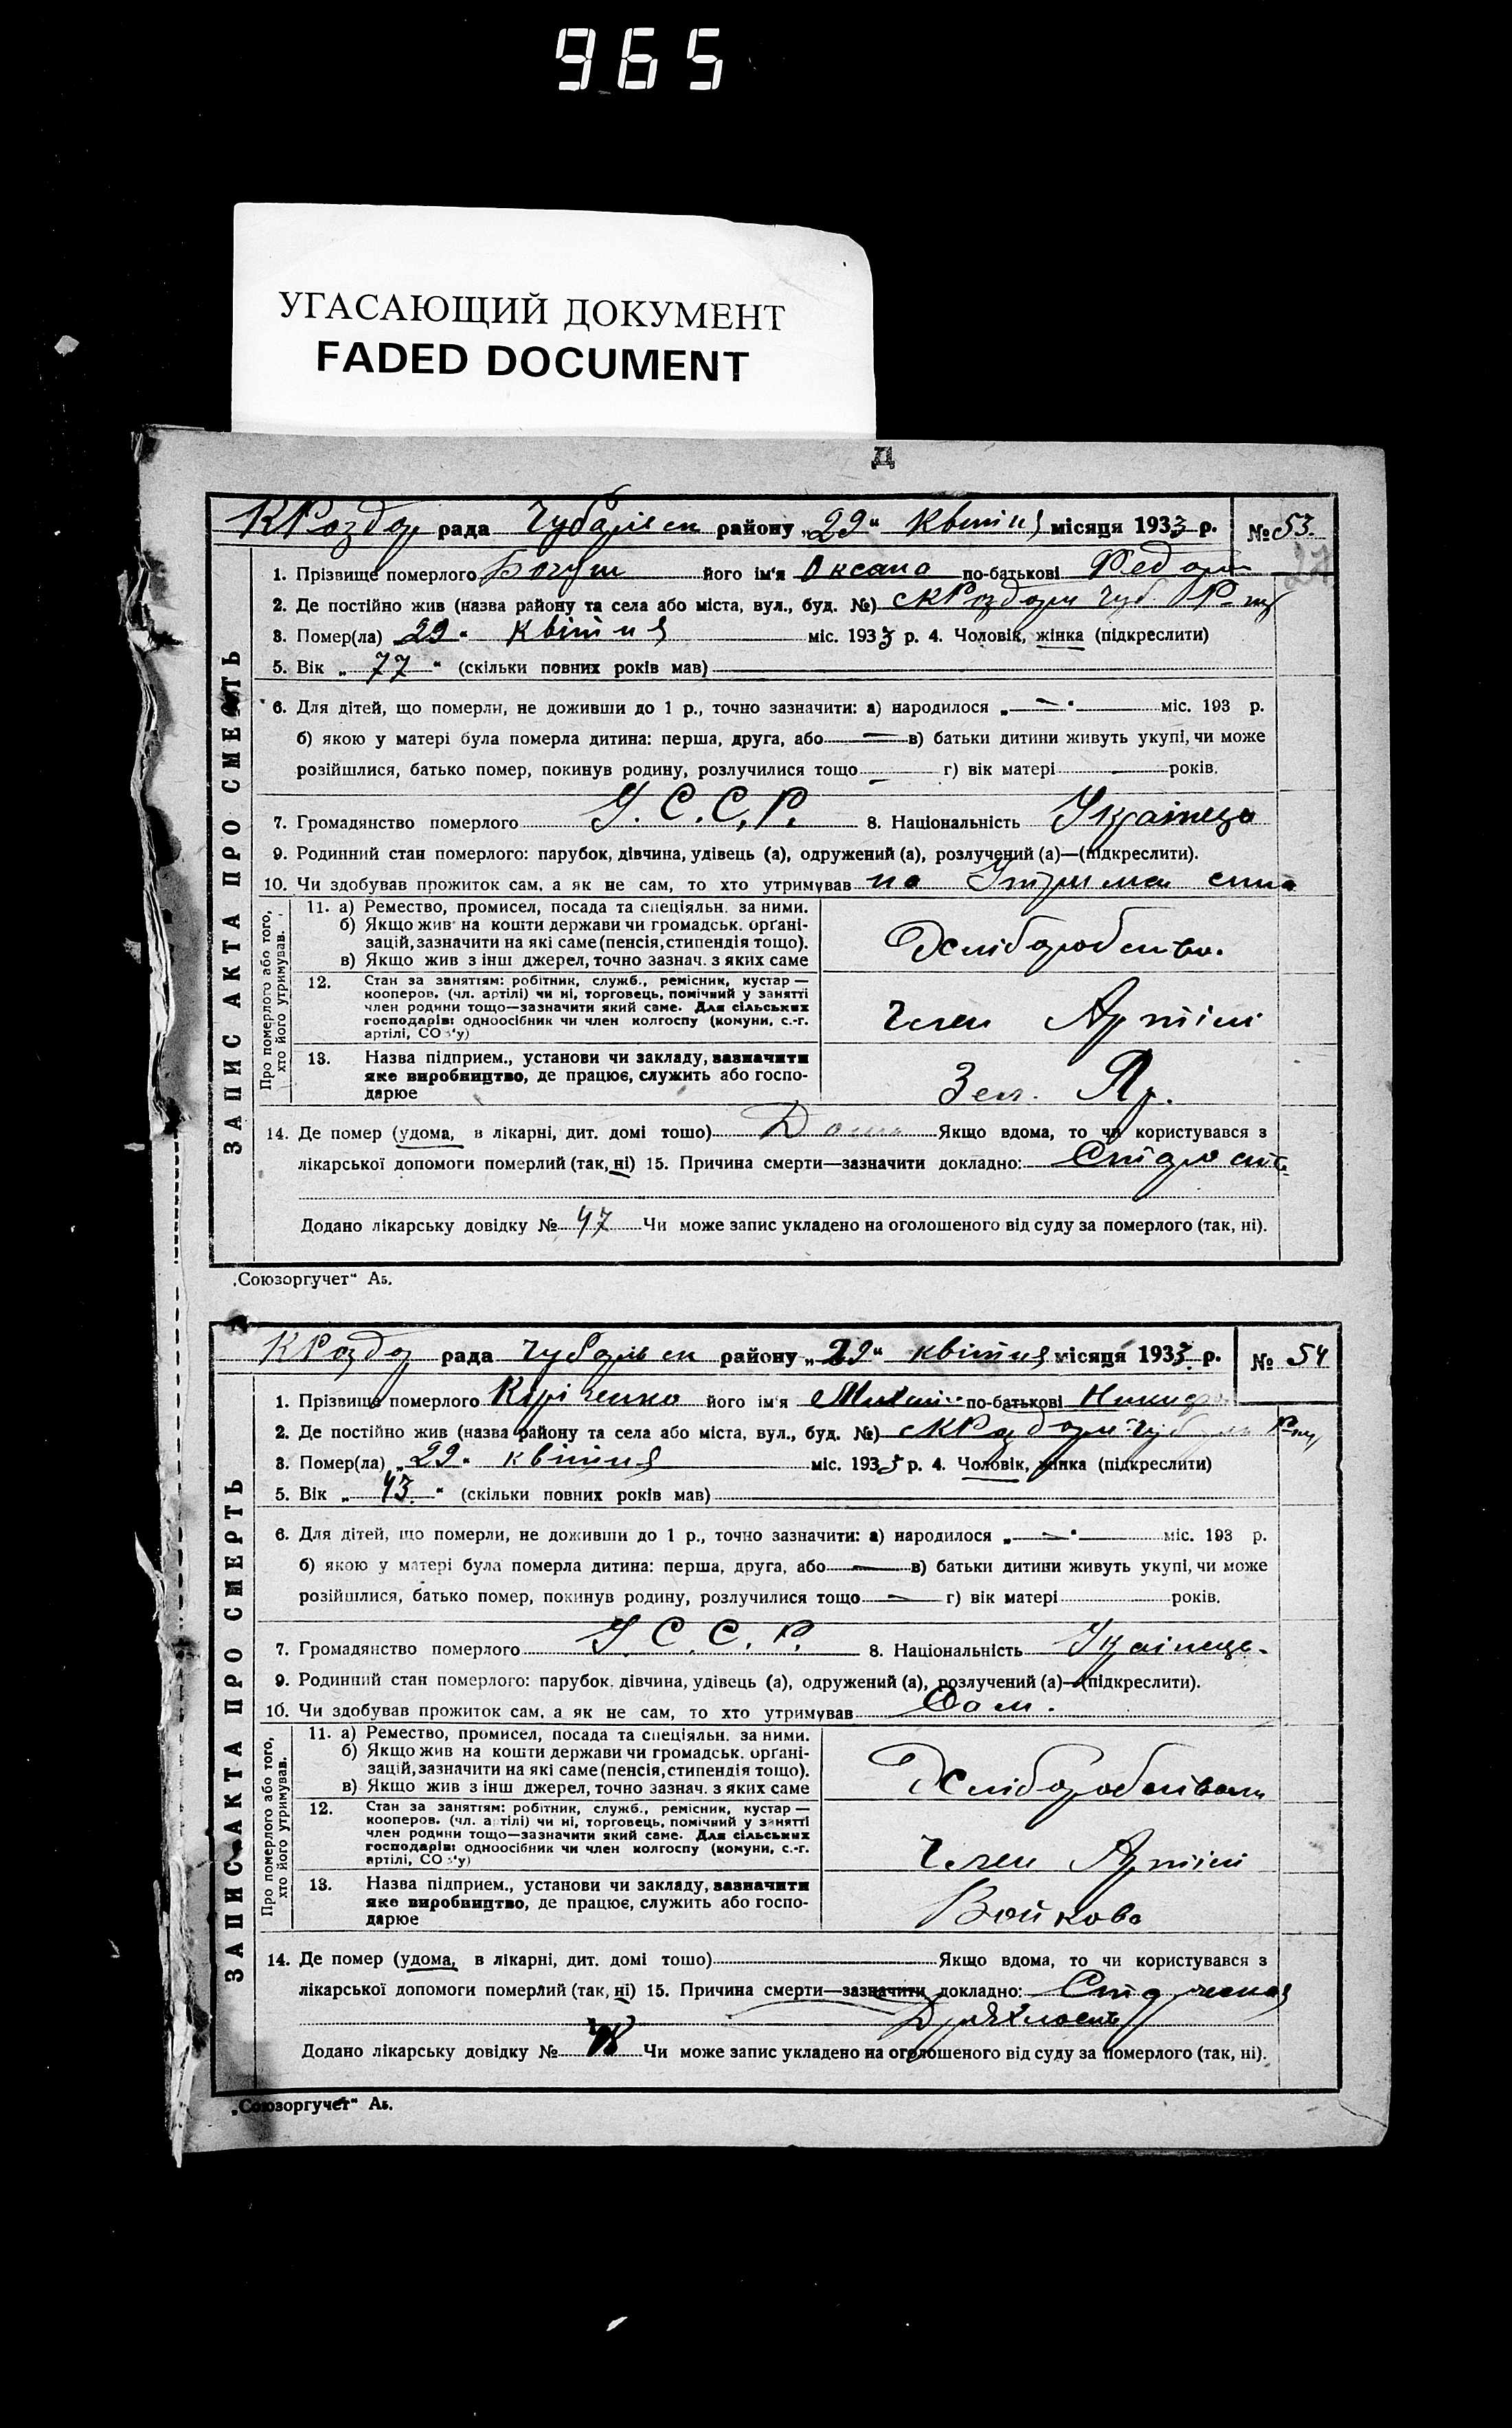 965
УГАСАЮЩИЙ ДОКУМЕНТ
FADED DOCUMENT
Д
КРоздор рада Чубарівск району „29“ квітня місяця 1933 р. № 53.
ЗАПИС АКТА ПРО СМЕРТЬ
1. Прізвище померлого Богуш його ім'я Оксана по-батькові Федор
2. Де постійно жив (назва району та села або міста, вул., буд. №) с КРоздори Чуб. Р-ну
3. Помер(ла) „29“ квітня міс. 1933 р. 4. Чоловік, жінка (підкреслити)
5. Вік „77“ (скільки повних років мав)
6. Для дітей, що померли, не доживши до 1 р., точно зазначити: а) народилося „—“ міс. 193 р.
б) якою у матері була померла дитина: перша, друга, або — в) батьки дитини живуть укупі, чи може
розійшлися, батько помер, покинув родину, розлучилися тощо г) вік матері — років.
7. Громадянство померлого У.С.С.Р. 8. Національність Українець
9. Родинний стан померлого: парубок, дівчина, удівець (а), одружений (а), розлучений (а)—(підкреслити).
10. Чи здобував прожиток сам, а як не сам, то хто утримував на Утриман сина
Про померлого або того, хто його утримував.
11. а) Ремество, промисел, посада та спеціяльн. за ними.
б) Якщо жив на кошти держави чи громадськ. орґані-
зацій, зазначити на які саме (пенсія, стипендія тощо).
в) Якщо жив з інш джерел, точно зазнач. з яких саме
Хліборобство.
12. Стан за заняттям: робітник, служб., ремісник, кустар —
кооперов. (чл. артілі) чи ні, торговець, помічний у занятті
член родини тощо—зазначити який саме. Для сільських
господарів: одноосібник чи член колгоспу (комуни, с.-г.
артілі, СО у)
Член Артілі
13. Назва підприєм., установи чи закладу, зазначити
яке виробництво, де працює, служить або госпо-
дарює
Зел. Яр.
14. Де помер (удома, в лікарні, дит. домі тошо) Дома Якщо вдома, то чи користувався з
лікарської допомоги померлий (так, ні) 15. Причина смерти—зазначити докладно: Старость
Додано лікарську довідку № 47 Чи може запис укладено на оголошеного від суду за померлого (так, ні).
„Союзоргучет“ А5.
КРоздор рада Чубарівск району „29“ квітня місяця 1933 р. № 54
ЗАПИС АКТА ПРО СМЕРТЬ
1. Прізвище померлого Кіріченко його ім'я по-батькові
2. Де постійно жив (назва району та села або міста, вул., буд. №) с КРоздори Р-ну
3. Помер(ла) „29“ квітня міс. 1933 р. 4. Чоловік, жінка (підкреслити)
5. Вік „43.“ (скільки повних років мав)
6. Для дітей, що померли, не доживши до 1 р., точно зазначити: а) народилося „—“ міс. 193 р.
б) якою у матері була померла дитина: перша, друга, або — в) батьки дитини живуть укупі, чи може
розійшлися, батько помер, покинув родину, розлучилися тощо — г) вік матері років.
7. Громадянство померлого У С. С. Р. 8. Національність Українець.
9. Родинний стан померлого: парубок, дівчина, удівець (а), одружений (а), розлучений (а)—(підкреслити).
10. Чи здобував прожиток сам, а як не сам, то хто утримував Сам.
Про померлого або того, хто його утримував.
11. а) Ремество, промисел, посада та спеціяльн. за ними.
б) Якщо жив на кошти держави чи громадськ. орґані-
зацій, зазначити на які саме (пенсія, стипендія тощо).
в) Якщо жив з інш джерел, точно зазнач. з яких саме
Хліборобством
12. Стан за заняттям: робітник, служб., ремісник, кустар —
кооперов. (чл. артілі) чи ні, торговець, помічний у занятті
член родини тощо—зазначити який саме. Для сільських
господарів: одноосібник чи член колгоспу (комуни, с.-г.
артілі, СО у)
Член Артілі
13. Назва підприєм., установи чи закладу, зазначити
яке виробництво, де працює, служить або госпо-
дарює
Войкова
14. Де помер (удома, в лікарні, дит. домі тошо) Якщо вдома, то чи користувався з
лікарської допомоги померлий (так, ні) 15. Причина смерти—зазначити докладно: Старческая
Дряхлость
Додано лікарську довідку № 48 Чи може запис укладено на оголошеного від суду за померлого (так, ні).
„Союзоргучет“ А5.